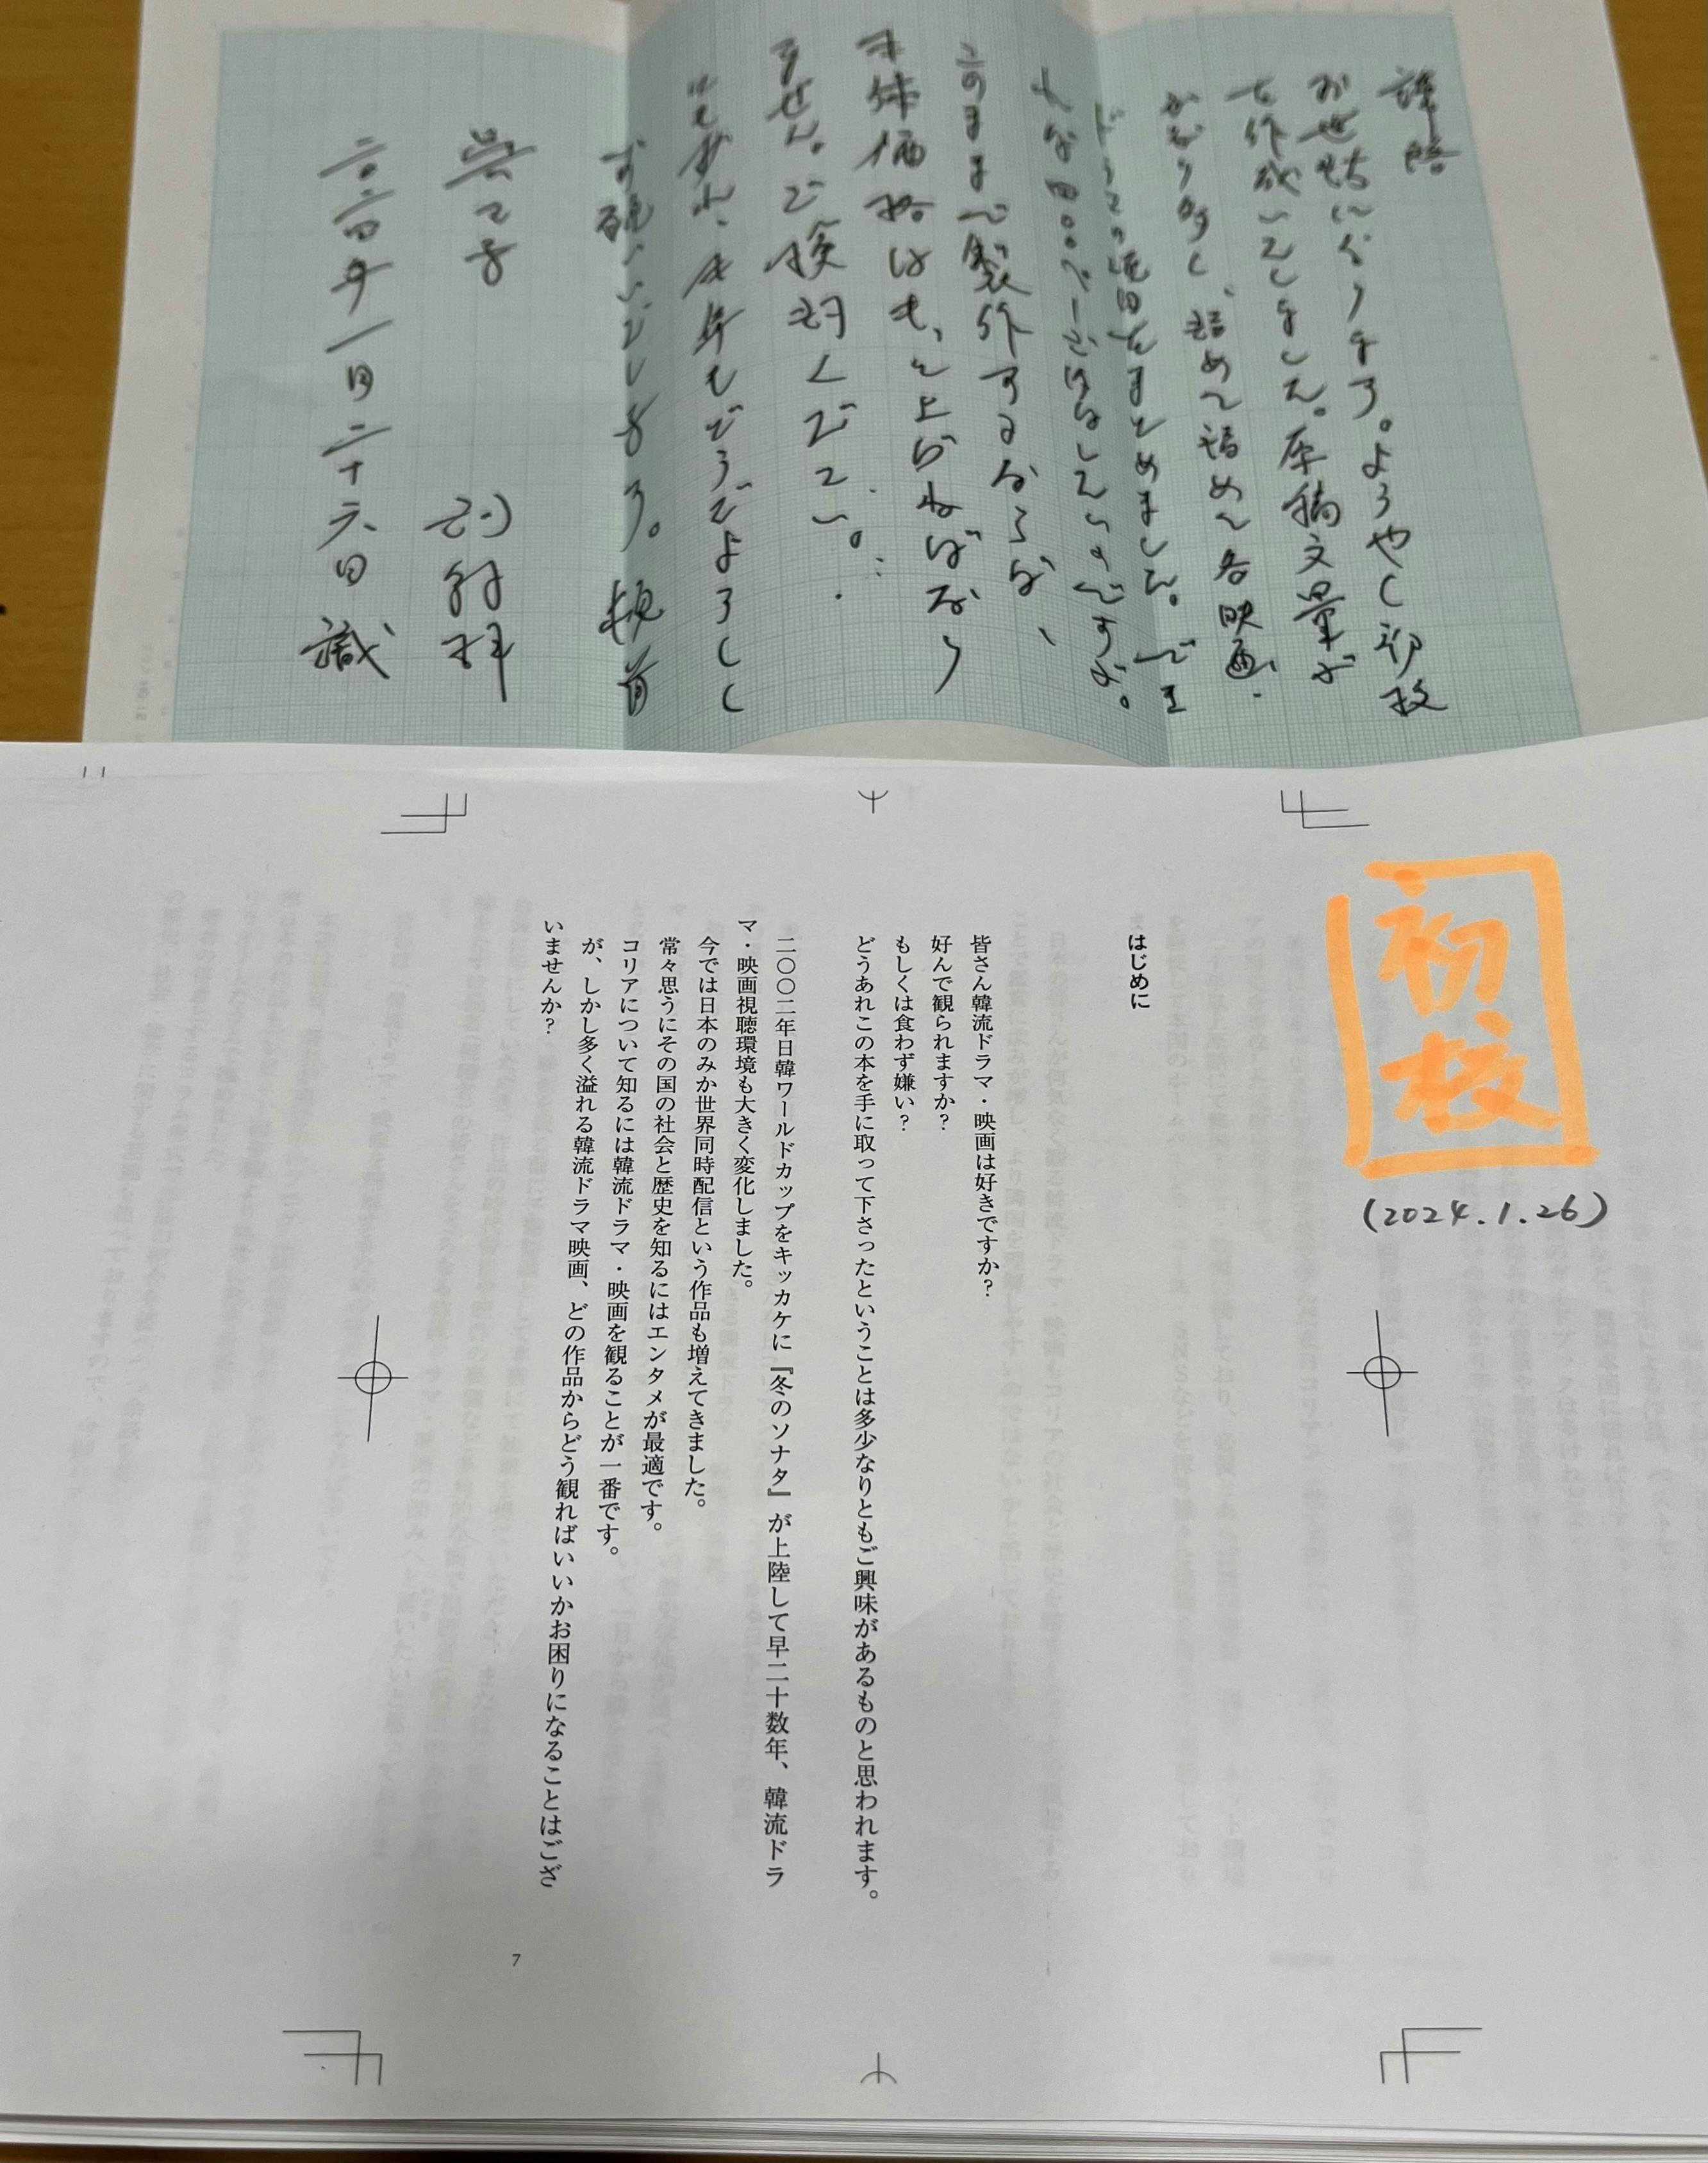 謹啓
お世話になります。ようやく初校
を作成いたしました。原稿文量が
かなり多く、詰めて詰めて各映画・
ドラマの境目をまとめました。でき
れば四〇〇ページにはしたいのですが。
このままで製作するならば、
本体価格はもっと上げねばなり
ません。ご検討ください。
はともあれ、本年もどうぞよろしく
お願いいたします。 頓首
拝
二〇二四年一月二十六日 識
初校
(2024.1.26)
はじめに
皆さん韓流ドラマ・映画は好きですか?
好んで観られますか?
もしくは食わず嫌い?
どうあれこの本を手に取って下さったということは多少なりともご興味があるものと思われます。
二〇〇二年日韓ワールドカップをキッカケに『冬のソナタ』が上陸して早二十数年、韓流ドラ
マ・映画視聴環境も大きく変化しました。
今では日本のみか世界同時配信という作品も増えてきました。
常々思うにその国の社会と歴史を知るにはエンタメが最適です。
コリアについて知るには韓流ドラマ・映画を観ることが一番です。
が、しかし多く溢れる韓流ドラマ映画、どの作品からどう観ればいいかお困りになることはござ
いませんか?
7